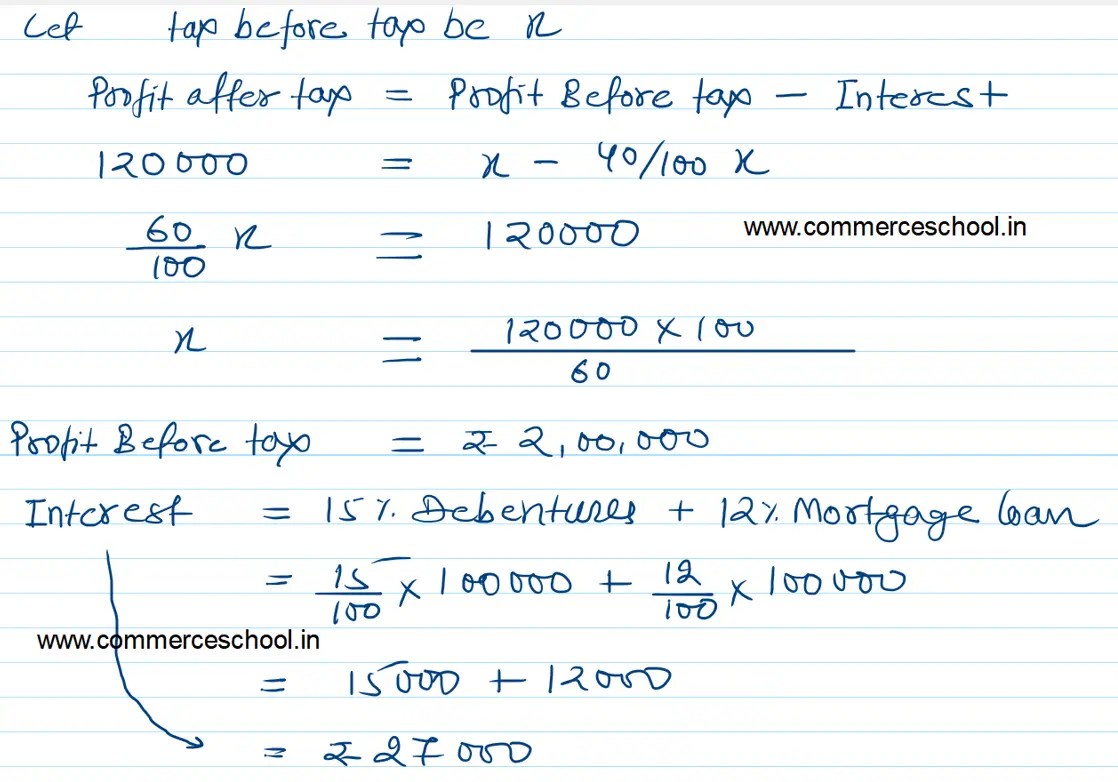 Let tax before tax be x
Profit after tax = Profit Before tax - Interest
120000 = x - 40/100 x
60/100 x = 120000
www.commerceschool.in
x = 120000 × 100 / 60
Profit Before tax = ₹ 2,00,000
Interest = 15% Debentures + 12% Mortgage loan
= 15/100 × 100000 + 12/100 × 100000
www.commerceschool.in
= 15000 + 12000
= ₹ 27000